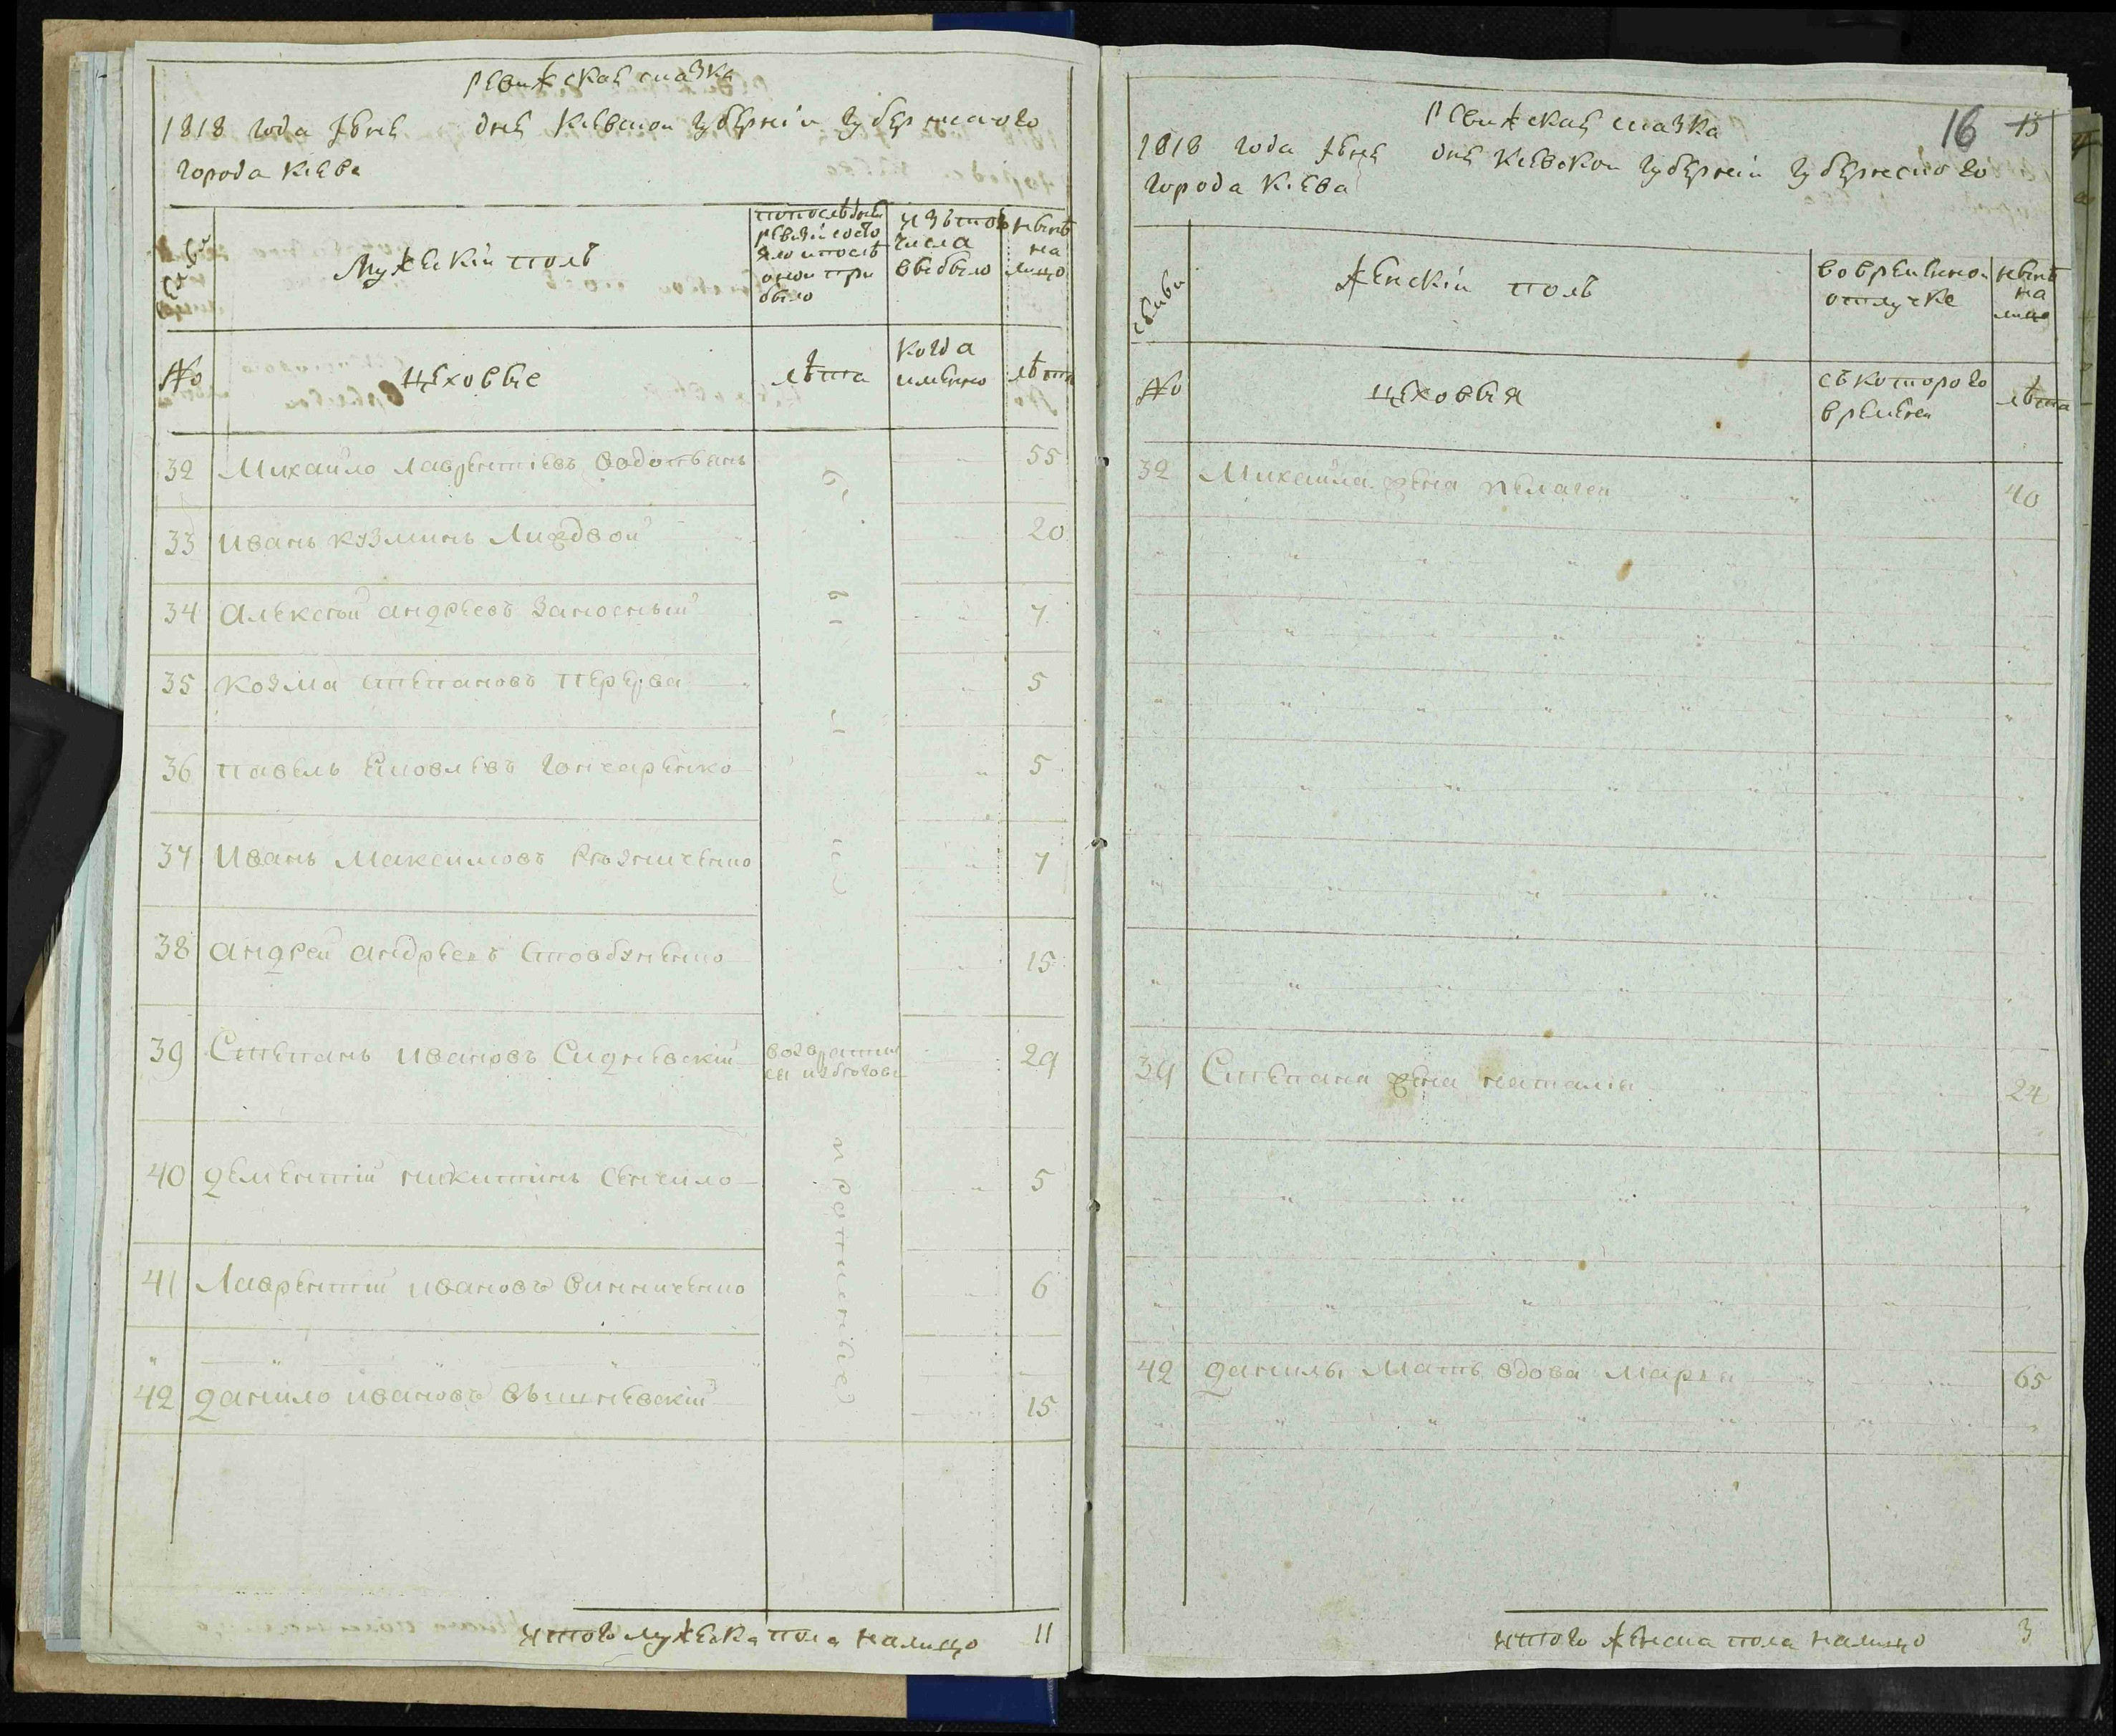 Ревижская сказка
1818 года Июня дня Киевской губерніи губернского
города Киева
Семьи
Мужескій полъ
попоследней
ревизіи состо
яло и после
оной при
было
изътого
числа
выбыло
ныне
на
лицо
№
цеховые
лѣта
когда
именно
лѣта
32 Михайло лаврентіевъ 55
33 иванъ кузминъ Лиходвой 20
34 алексѣй андреевъ Заносный 7
35 козма степановъ перерва 5
36 павелъ яковлевъ гончаренко 5
37 иванъ максимовъ 7
38 андрей андреевъ стовбуненко 15
39 Степанъ ивановъ Сидневскій возвратил
ся изъбѣговъ 29
40 дементій никитинъ Сенчило 5
41 Лаврентій ивановъ винниченко 6
42 данило ивановъ вышневскій 15
итого мужеска пола налицо 11
16 15
Ревижская сказка
1818 года Июня дня Киевской губерніи губернского
города Киева
семьи
Женскій полъ
вовременной
отлучке
ныне
на
лицо
№
цеховыя
съкоторого
времени
лѣта
32 Михайла жена пелагея 40
39 Степана жена наталія 24
42 данилы мать вдова марья 65
итого женска пола налицо 3